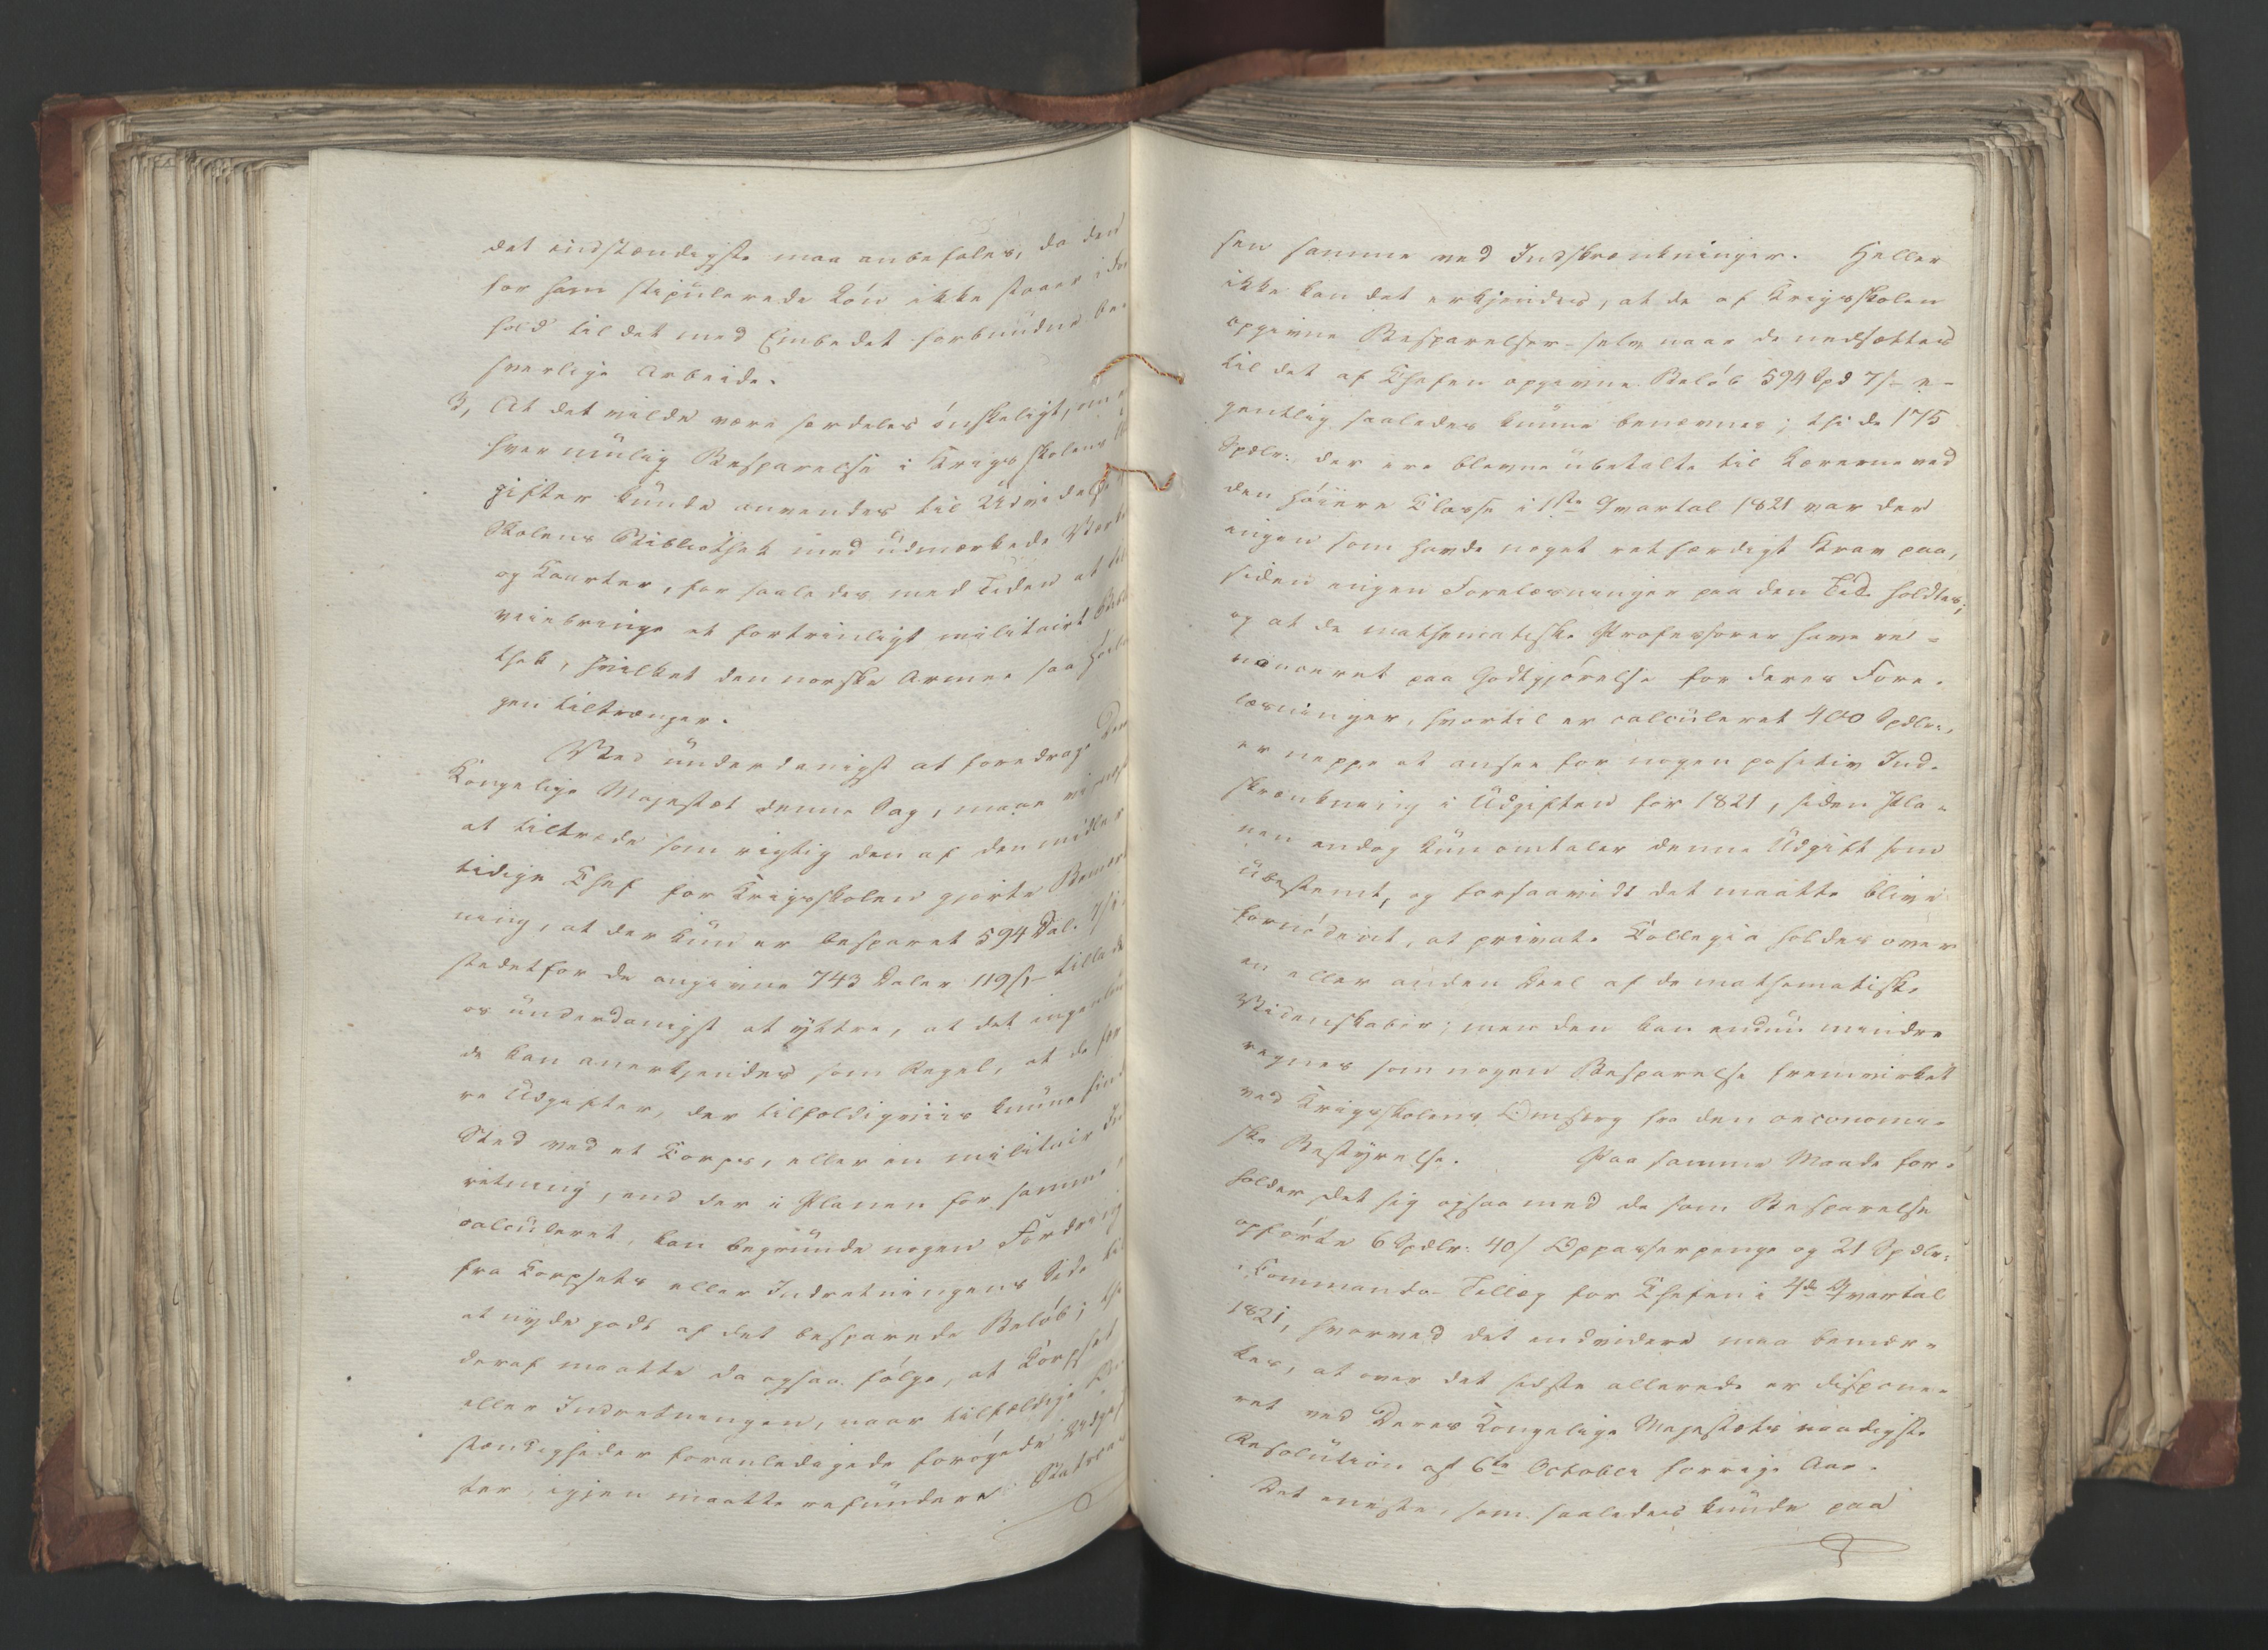 det indstændigste maa anbefales, da den
for ham stipulerede Løn ikke staaer i For
hold til det med Embedet forbundne be-
sværlige Arbeide.
3, At det vilde være særdeles ønskeligt, om
hver mulig Besparelse i Krigsskolens Ud
gifter kunde anvendes til Udvidelse
Skolens Bibliothek med udmærkede Værker
og Kaarter, for saaledes med Tiden at til
veiebringe et fortrinligt militairt Biblio
thek, hvilket den norske Armee saa høili
gen tiltrænger.
Ved underdanigst at foredrage Deres
Kongelige Majestæt denne Sag, maae vi
at tiltræde som rigtig den af den midler
tidige Chef for Krigsskolen gjorte Bemærk
ning, at der kun er besparet 594 Dal. 7 s i
stedetfor de angivne 743 Daler 119 s, tillade
os underdanigst at yttre, at det ingenlun
de kan anerkjendes som Regel, at de fær
re Udgifter, der tilfældigviis kunne finde
Sted ved et Corps, eller en militair Ind
retning, end der i Planen for samme er
calculeret, kan begrunde nogen Fordring
fra Corpsets eller Indretningens Side til
at nyde godt af det besparede Beløb; thi
deraf maatte da ogsaa følge, at Corpset
eller Indretningen, naar tilfældige Om
stændigheder foranledigede forøgede Udgif
ter, igjen maatte refundere Statscas
sen samme ved Indskrænkninger. Heller
ikke kan det erkjendes, at de af Krigsskolen
opgivne Besparelser - selv naar de nedsættes
til det af Chefen opgivne Beløb 594 Spd 7 s - e-
gentlig saaledes kunne benævnes; thi de 175
Spdlr: der ere blevne ubetalte til Lærerne ved
den høiere Classe i 1ste Qvartal 1821 var der
ingen som havde noget retfærdigt Krav paa,
siden ingen Forelæsninger paa den Tid holdtes;
og at de mathematiske Professorer have re-
nonceret paa Godtgjørelse for deres Fore-
læsninger, hvortil er calculeret 400 Spdlr.,
er neppe at ansee for nogen positiv Ind-
skrænkning i Udgiften for 1821, siden Pla-
nen endog kun omtaler denne Udgift som
ubestemt, og forsaavidt det maatte blive
fornødent, at private Collegia holdes over
en eller anden Deel af de mathematiske
Videnskaber; men den kan endnu mindre
regnes som nogen Besparelse fremvirket
ved Krigsskolens Omsorg for den oeconomi-
ske Bestyrelse. Paa samme Maade for-
holder det sig ogsaa med de som Besparelse
opførte 6 Spdlr: 40 s Oppasserpenge og 21 Spdlr:
i Commando-Tillæg for Chefen i 4de Qvartal
1821, hvorved det endvidere maa bemær-
kes, at over det sidste allerede er dispone-
ret ved Deres Kongelige Majestæts naadigste
Resolution af 6te October forrige Aar.
Det eneste, som saaledes kunde paa